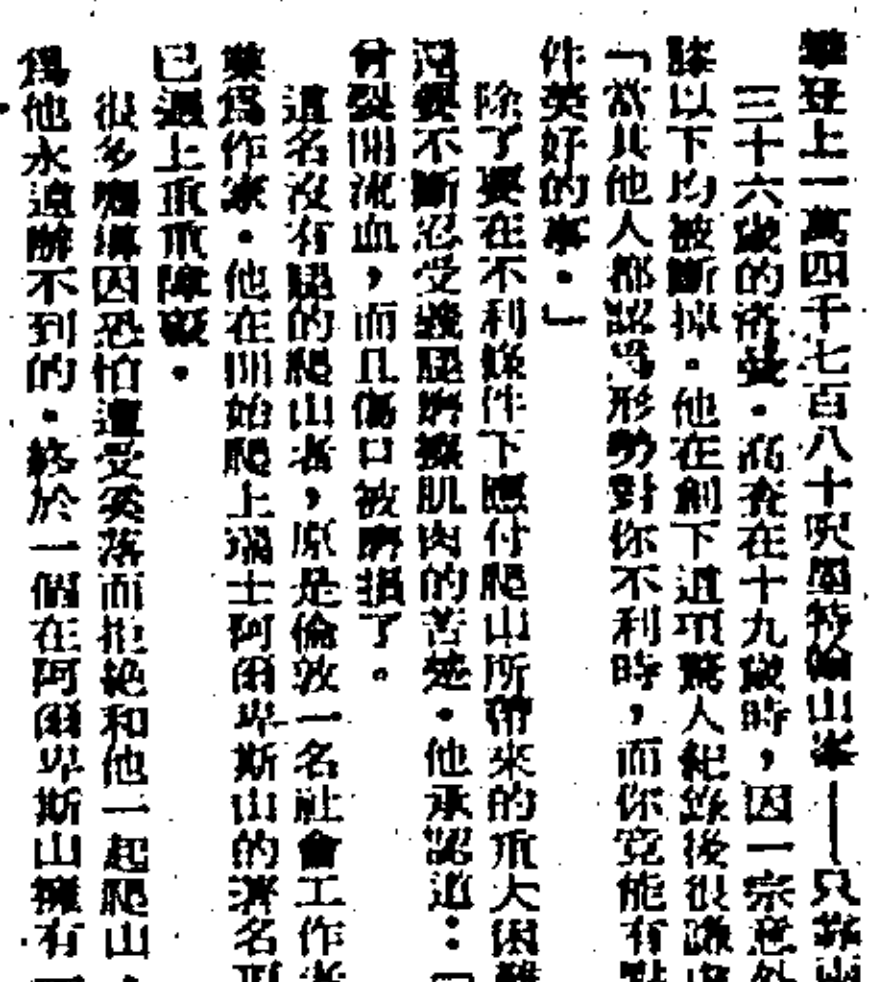 攀登上一萬四千七百八十呎馬特倫山峯——只靠
三十六歲的洛 。高 在十九歲時,因一宗意外
膝以下均被斷掉。他在創下這項驚人紀錄後很謙虛
「當其他人都認為形勢對你不利時,而你竟能有點
件美好的事。」
除了要在不利條件下應付爬山所帶來的重大困難
還要不斷忍受義腿磨擦肌肉的苦楚。他承認道:「
曾裂開流血,而且傷口被磨損了。
這名沒有腿的爬山者,原是倫敦一名社會工作者
業爲作家。他在開始爬上瑞士阿爾卑斯山的著名
已遇上重重障礙。
很多嚮導因恐怕遭受奚落而拒絶和他一起爬山,
爲他永遠辦不到的。終於一個在阿爾卑斯山擁有一